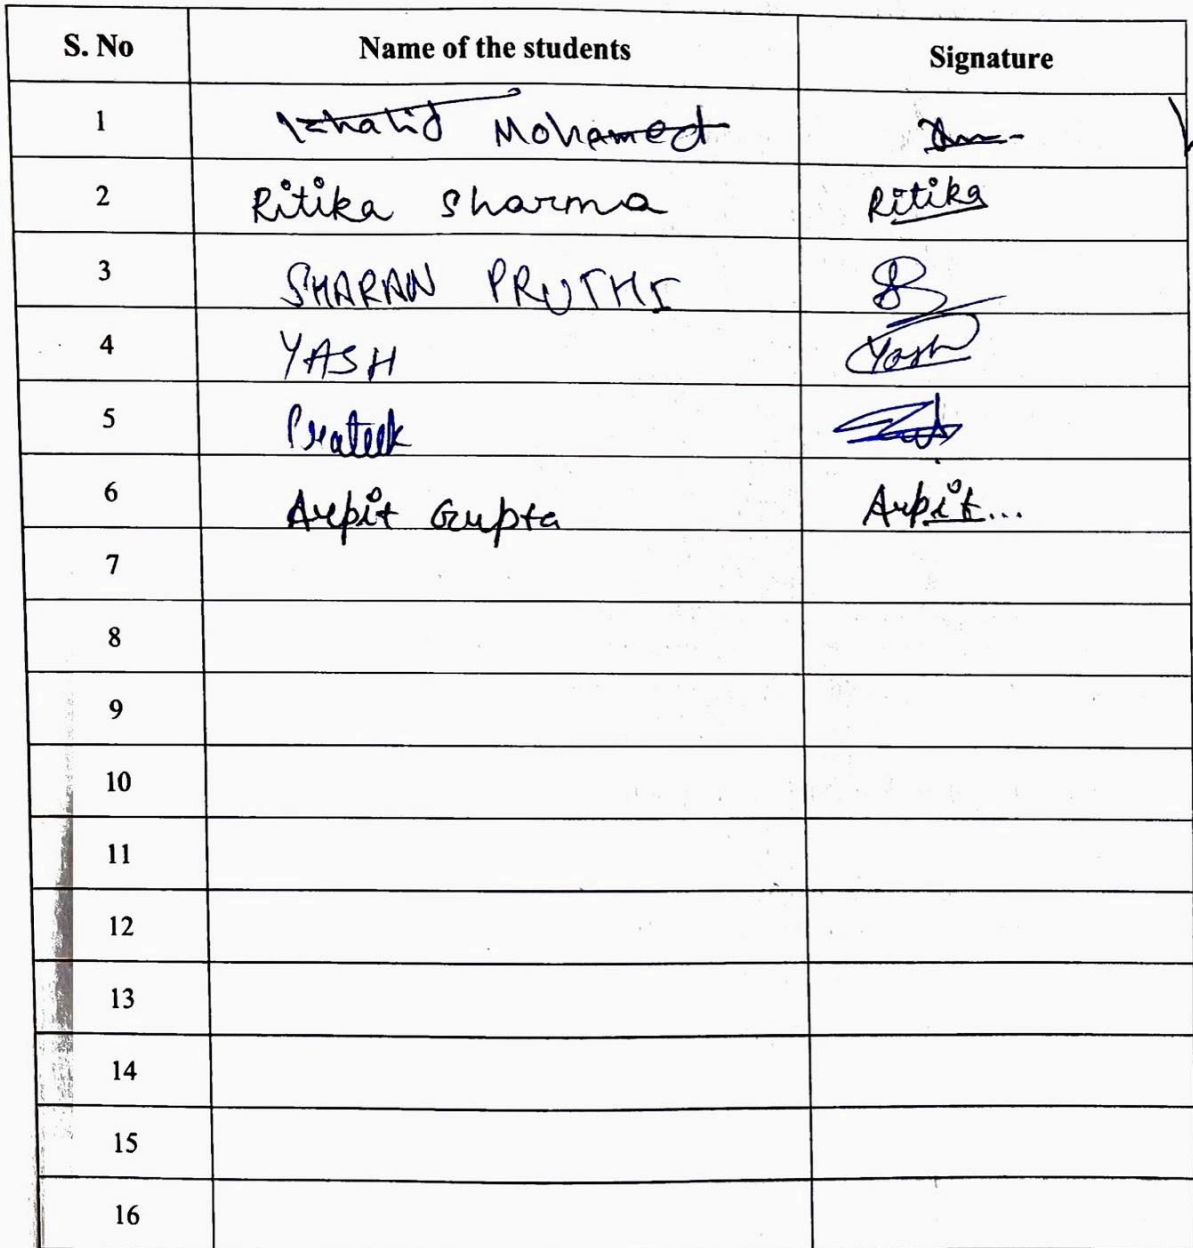 S. No Name of the students Signature
1 Khalid Mohamed
2 Ritika Sharma Ritika
3 SHARAN PRUTHI
4 YASH Yash
5 Prateek
6 Arpit Gupta Arpit...
7
8
9
10
11
12
13
14
15
16